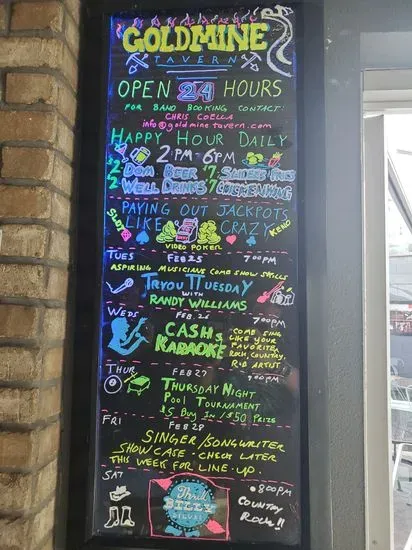 GOLDMINE
TAVERN
OPEN 24 HOURS
FOR BAND BOOKING CONTACT:
CHRIS COELLA
info@goldminetavern.com
HAPPY HOUR DAILY
2:PM-6PM
$2 DOM BEER $7
$2 WELL DRINKS $7
PAYING OUT JACKPOTS
LIKE CRAZY
SLOTS
KENO
VIDEO POKER
TUES FEB 25 7:00PM
ASPIRING MUSICIANS COME SHOW SKILLS
TRYOUTTUESDAY
WITH
RANDY WILLIAMS
WEDS FEB. 26 7:00PM
CASH &
KARAOKE
COME SING
LIKE YOUR
FAVORITE
ROCK, COUNTRY,
R&B ARTIST
THUR FEB 27 9:00PM
THURSDAY NIGHT
POOL TOURNAMENT
$5 BUY IN/$50 PRIZE
FRI FEB 28
SINGER/SONGWRITER
SHOWCASE - CHECK LATER
THIS WEEK FOR LINE-UP.
SAT 8:00PM
Thrill
BILLY
COUNTRY
ROCK!!